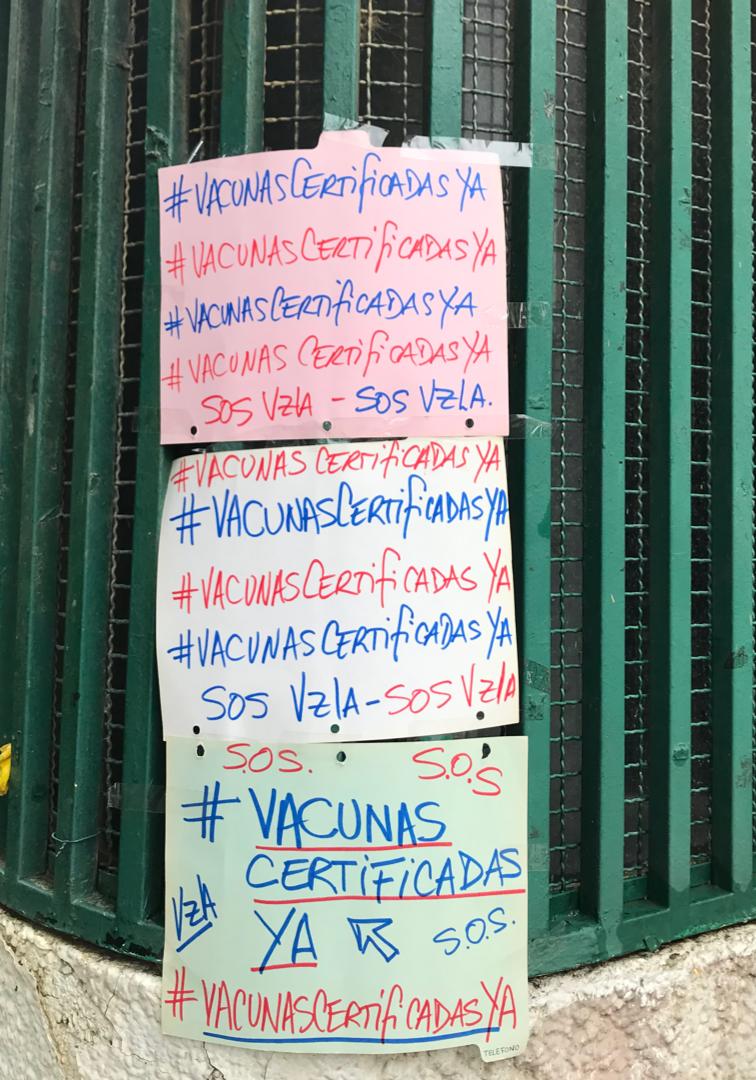 #VACUNASCERTifiCADAS YA
#VACUNASCERTifiCADASYA
#VACUNASCERTifiCADASYA
#VACUNAS CERTifiCADASYA
SOS VZlA - SOS VZLA.
#VACUNAS CERTifiCADAS YA
#VACUNASCERTifiCADASYA
#VACUNASCERTifiCADAS YA
#VACUNASCERTifiCADAS YA
SOS VZlA-SOS VZlA
S.O.S. S.O.S
# VACUNAS
CERTiFiCADAS
VZA YA S.O.S.
#VACUNASCERTifiCADASYA
TELEFONO